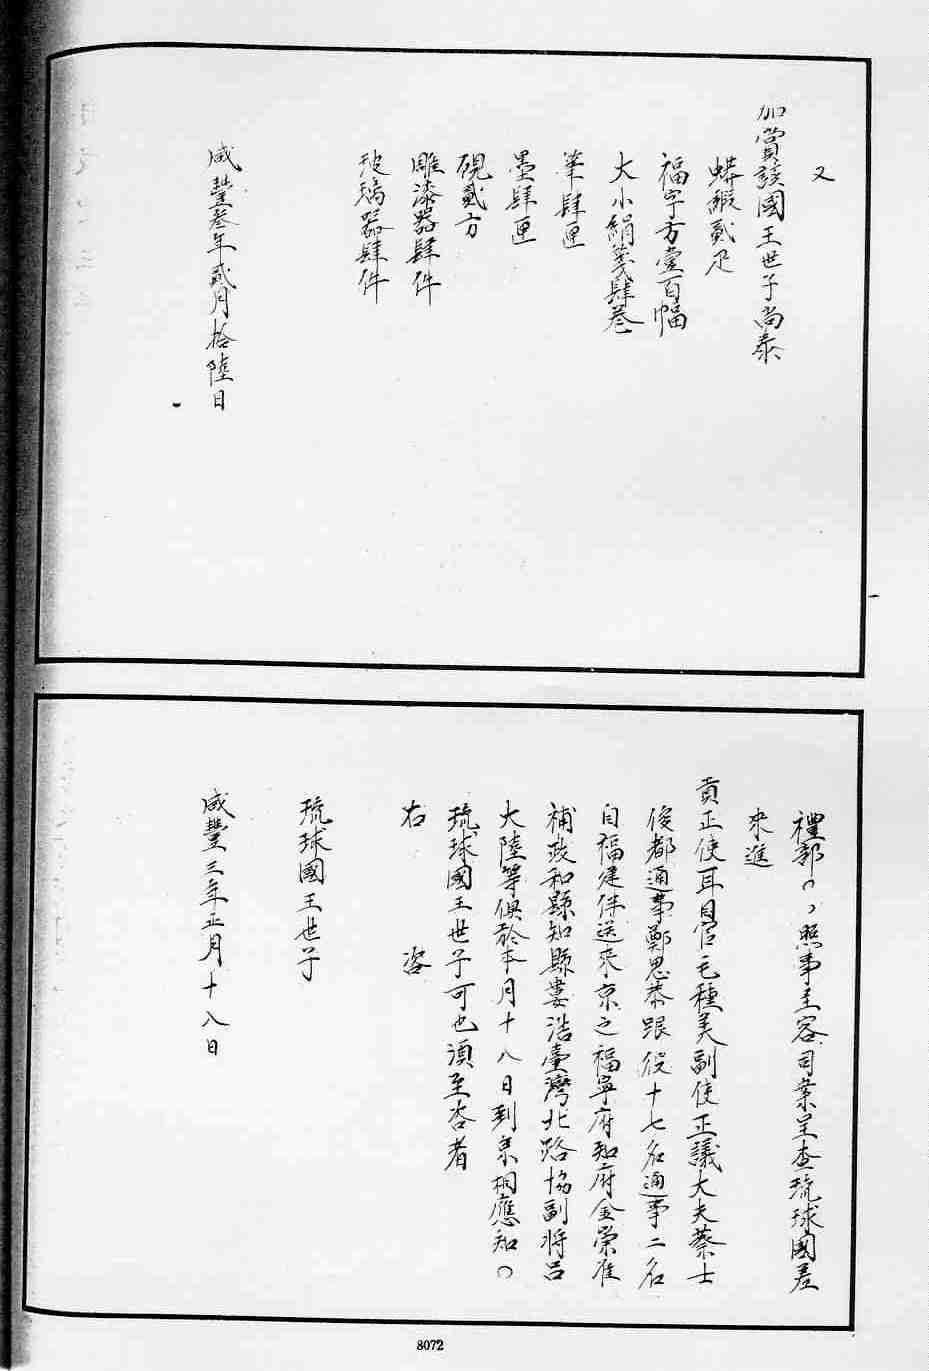 又
加賞該國王世子尚泰
蟒緞貳疋
福字方壹百幅
大小絹箋肆卷
筆肆匣
墨肆匣
硯貳方
雕漆器肆件
玻璃器肆件
咸豐叁年貳月拾陸日
禮部〇〻照事主客司案呈查琉球國差
來進
貢正使耳目官毛種美副使正議大夫蔡士
俊都通事鄭思恭跟伇十七名通事二名
自福建伴送來京之福寧府知府金榮准
補政和縣知縣婁浩臺灣北路協副將呂
大陞等俱於本月十八日到京相應知〇
琉球國王世子可也須至咨者
右 咨
琉球國王世子
咸豐三年正月十八日
8072